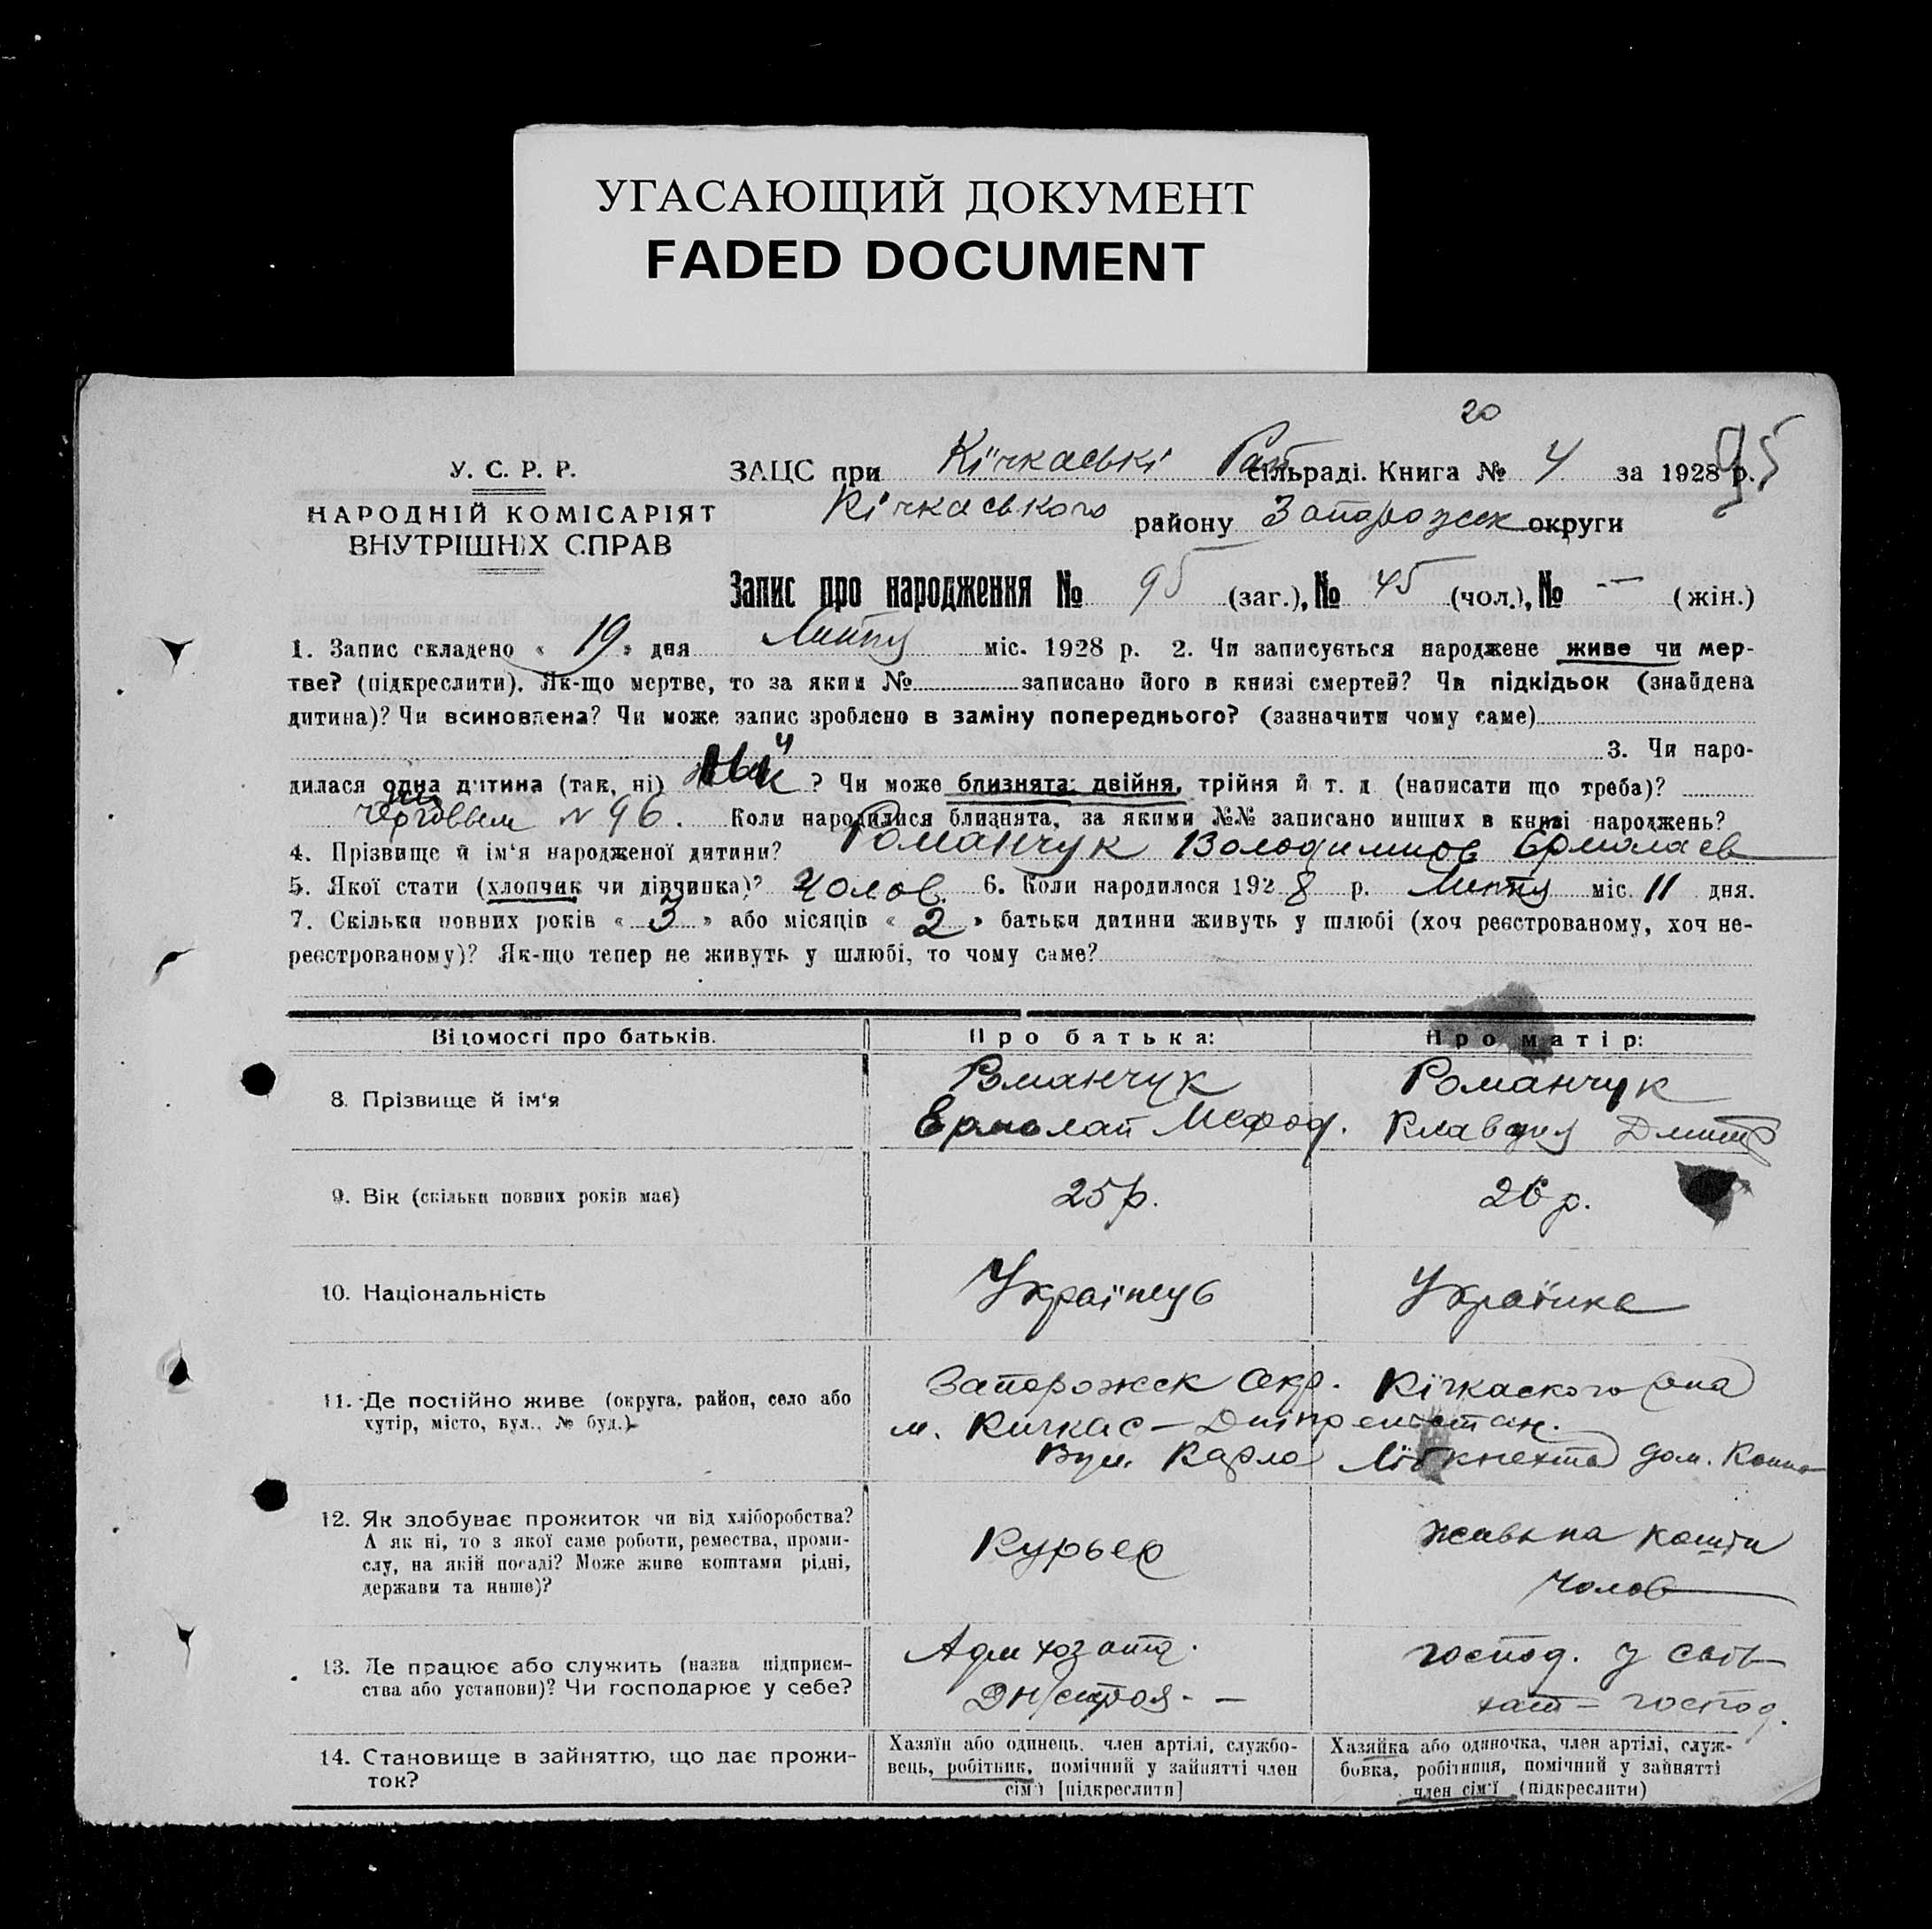 УГАСАЮЩИЙ ДОКУМЕНТ
FADED DOCUMENT
20
95
У. С. Р. Р.
НАРОДНІЙ КОМІСАРІЯТ
ВНУТРІШНІХ СПРАВ
ЗАЦС при Кічкаські Рай сільраді. Книга № 4 за 1928 р.
Кічкаського району Запорожск округи
Запис про народження № 95 (заг.), № 45 (чол.), № -- (жін.)
1. Запис складено « 19 » дня Липня міс. 1928 р. 2. Чи записується народжене живе чи мер-
тве? (підкреслити). Як-що мертве, то за яким № записано його в книзі смертей? Чи підкідьок (знайдена
дитина)? Чи всиновлена? Чи може запис зроблено в заміну попереднього? (зазначити чому саме)
3. Чи наро-
дилася одна дитина (так, ні) ? Чи може близнята: двійня, трійня й т. д (написати що треба)?
N 96. Коли народилися близнята, за якими №№ записано инших в книзі народжень?
4. Прізвище й ім'я народженої дитини? Романчук Володимиров Ермолаев
5. Якої стати (хлопчик чи дівчинка)? Чолов. 6. Коли народилося 1928 р. Липня міс. 11 дня.
7. Скільки повних років « 3 » або місяців « 2 » батьки дитини живуть у шлюбі (хоч реєстрованому, хоч не-
реєстрованому)? Як-що тепер не живуть у шлюбі, то чому саме?
Відомості про батьків. Про батька: Про матір:
8. Прізвище й ім'я
Романчук
Ермолай Мефод.
Романчук
Клавдия Дмитр
9. Вік (скільки повних років має) 25 р. 26 р.
10. Національність Українець Українка
11. Де постійно живе (округа, район, село або
хутір, місто, вул., № буд.)
Запорожск Окр. Кічкаского рна
м. Кичкас — Дніпре
Вул. Карла Лібкнехта дом.
12. Як здобуває прожиток чи від хліборобства?
А як ні, то з якої саме роботи, ремества, проми-
слу, на якій посаді? Може живе коштами рідні,
держави та инше)?
Курьер
на кошти
Чолов
13. Де працює або служить (назва підприєм-
ства або установи)? Чи господарює у себе?
Адм хоз отд.
Дн/строя. —
господ. у своїв
хат — господ.
14. Становище в зайняттю, що дає прожи-
ток?
Хазяїн або одинець, член артілі, службо-
вець, робітник, помічний у зайнятті член
сім'ї [підкреслити]
Хазяйка або одиночка, член артілі, служ-
бовка, робітниця, помічний у зайнятті
член сім'ї (підкреслити)